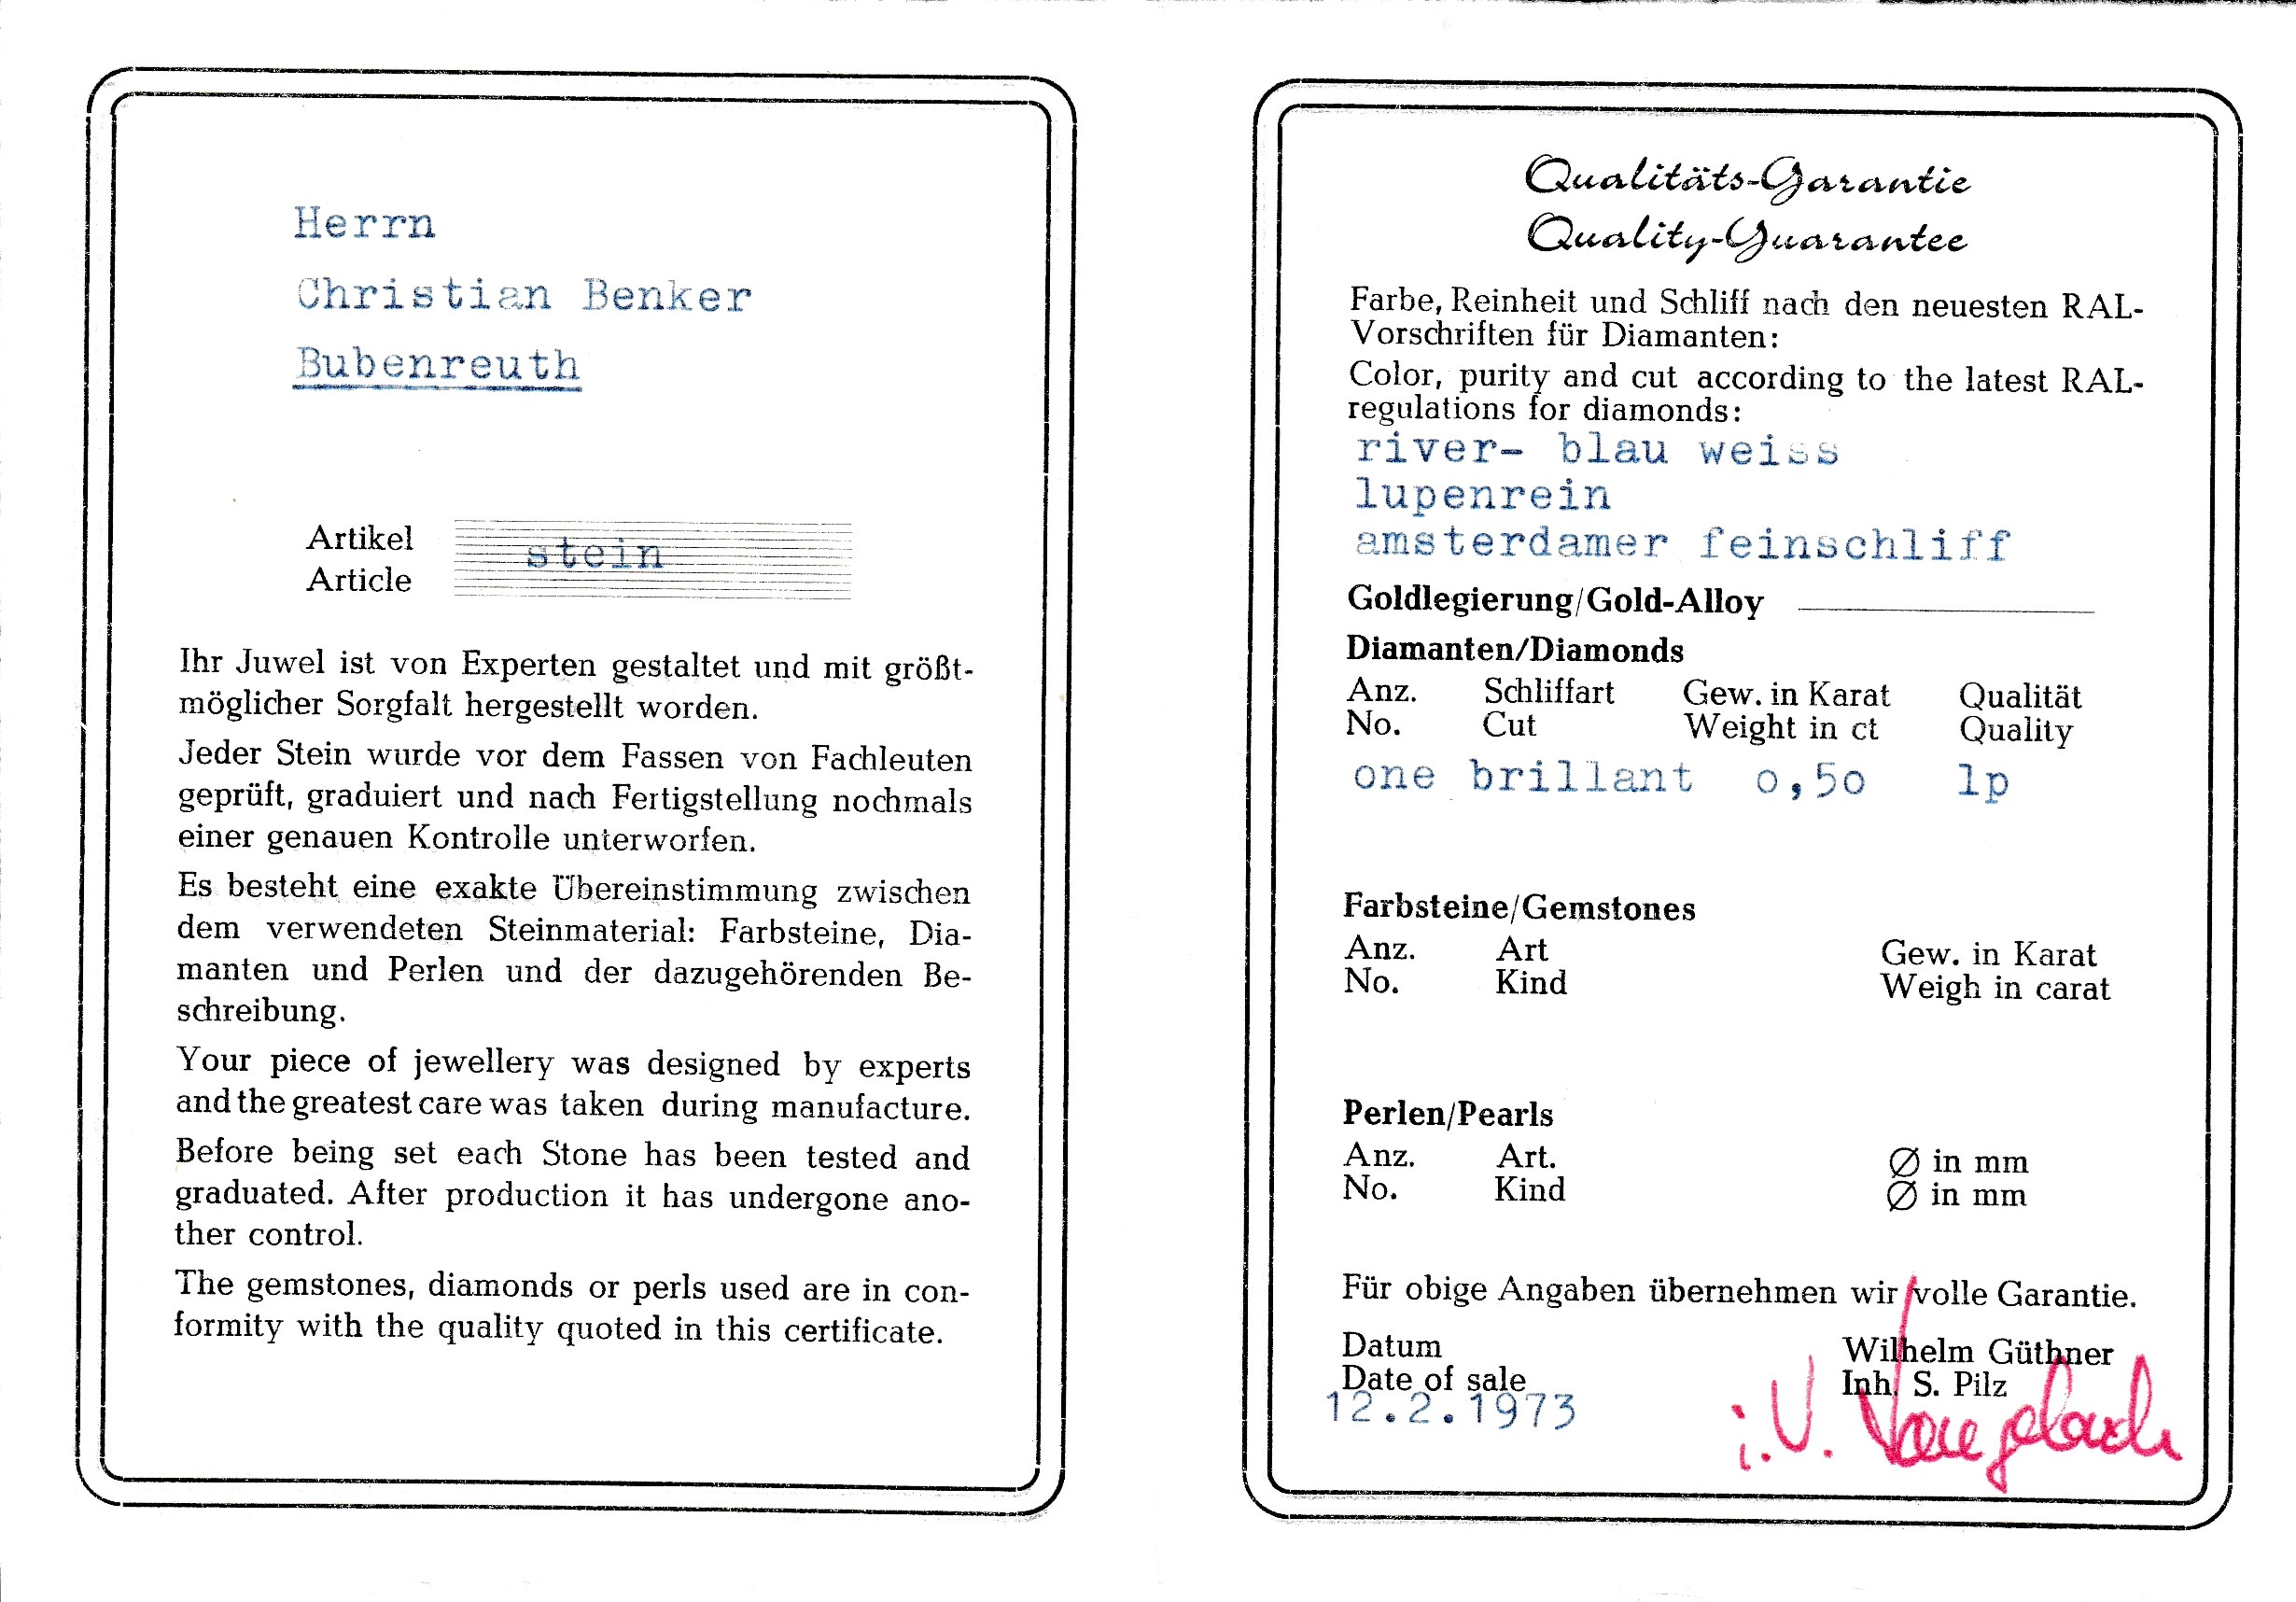 Herrn
Christian Benker
Bubenreuth
Artikel
Article
stein
Ihr Juwel ist von Experten gestaltet und mit größt-
möglicher Sorgfalt hergestellt worden.
Jeder Stein wurde vor dem Fassen von Fachleuten
geprüft, graduiert und nach Fertigstellung nochmals
einer genauen Kontrolle unterworfen.
Es besteht eine exakte Übereinstimmung zwischen
dem verwendeten Steinmaterial: Farbsteine, Dia-
manten und Perlen und der dazugehörenden Be-
schreibung.
Your piece of jewellery was designed by experts
and the greatest care was taken during manufacture.
Before being set each Stone has been tested and
graduated. After production it has undergone ano-
ther control.
The gemstones, diamonds or perls used are in con-
formity with the quality quoted in this certificate.
Qualitäts-Garantie
Quality-Guarantee
Farbe, Reinheit und Schliff nach den neuesten RAL-
Vorschriften für Diamanten:
Color, purity and cut according to the latest RAL-
regulations for diamonds:
river- blau weiss
lupenrein
amsterdamer feinschliff
Goldlegierung/Gold-Alloy
Diamanten/Diamonds
Anz. Schliffart Gew. in Karat Qualität
No. Cut Weight in ct Quality
one brillant o,5o lp
Farbsteine/Gemstones
Anz. Art Gew. in Karat
No. Kind Weigh in carat
Perlen/Pearls
Anz. Art. Ø in mm
No. Kind Ø in mm
Für obige Angaben übernehmen wir volle Garantie.
Datum Wilhelm Güthner
Date of sale Inh. S. Pilz
12.2.1973
i.V.